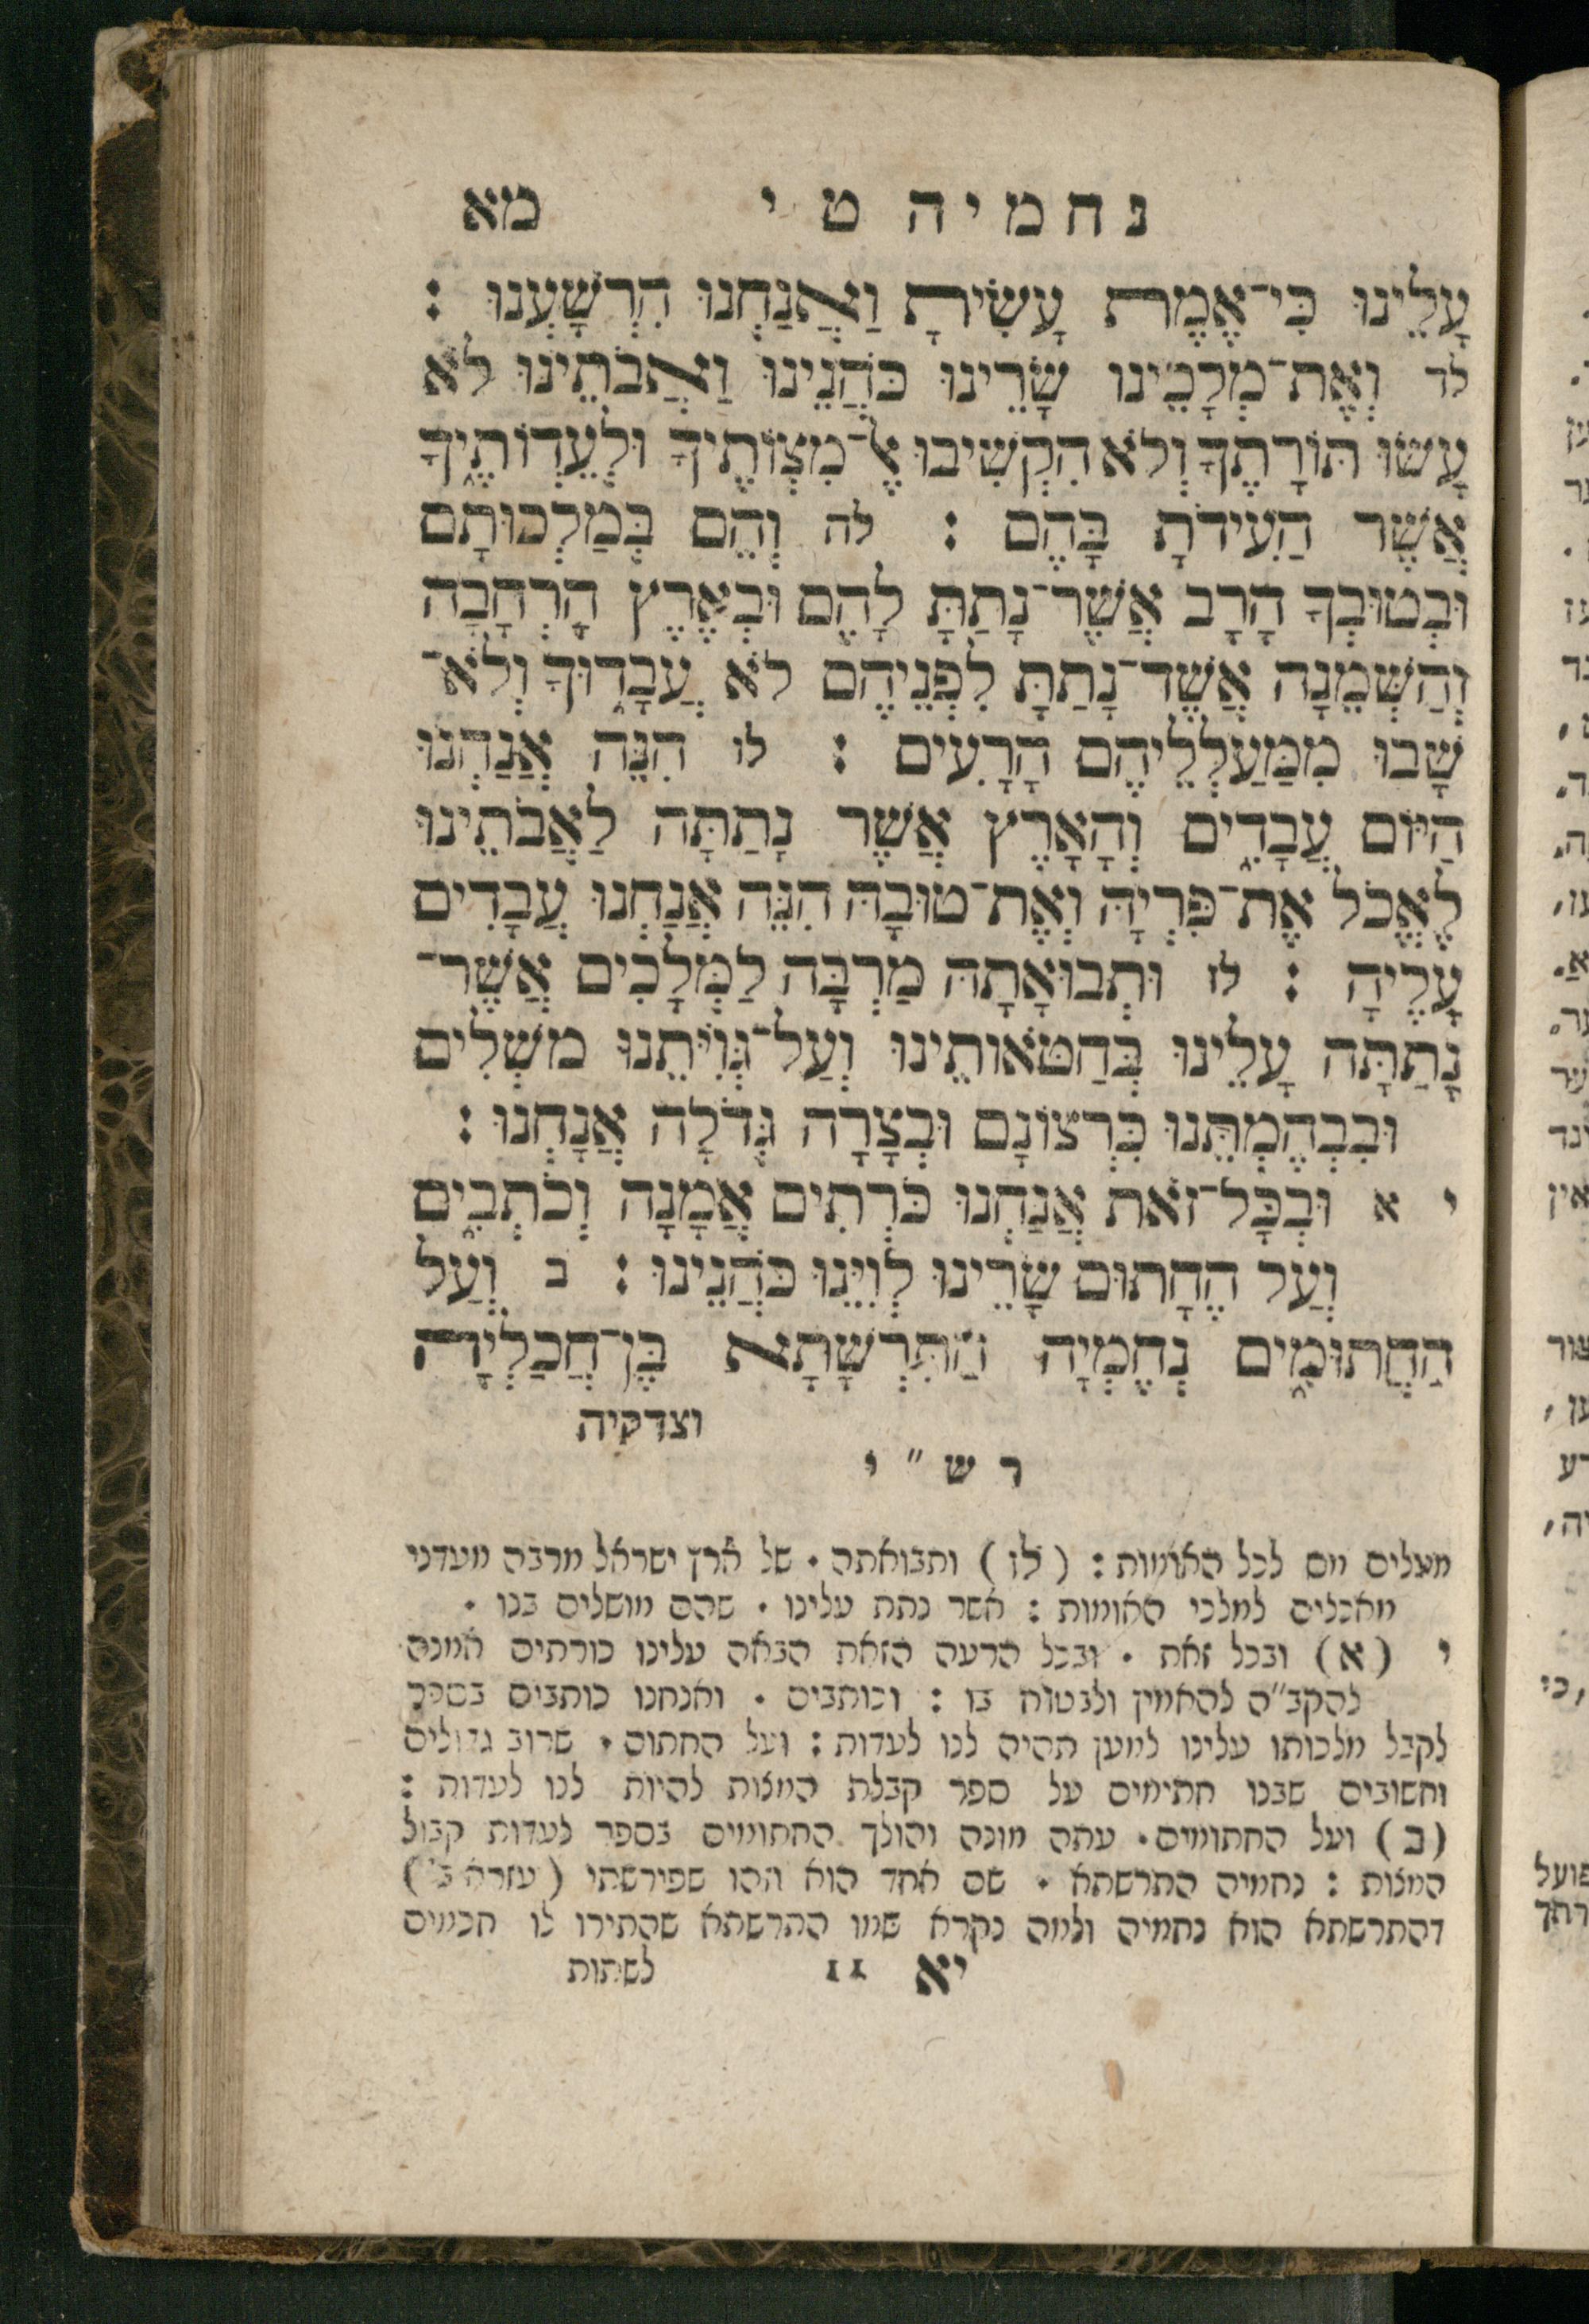 נחמיה ט י מא
עָלֵינוּ כִּי־אֱמֶת עָשִׂיתָ וַאֲנַחְנוּ הִרְשָׁעְנוּ :
לד וְאֶת־מְלָכֵינוּ שָׂרֵינוּ כֹּהֲנֵינוּ וַאֲבֹתֵינוּ לֹא
עָשׂוּ תּוֹרָתֶךָ וְלֹא הִקְשִׁיבוּ אֶל־מִצְוֹתֶיךָ וּלְעֵדְוֹתֶיךָ
אֲשֶׁר הַעִידֹתָ בָּהֶם : לה וְהֵם בְּמַלְכוּתָם
וּבְטוּבְךָ הָרָב אֲשֶׁר־נָתַתָּ לָהֶם וּבְאֶרֶץ הָרְחָבָה
וְהַשְּׁמֵנָה אֲשֶׁר־נָתַתָּ לִפְנֵיהֶם לֹא עֲבָדוּךָ וְלֹא־
שָׁבוּ מִמַּעַלְלֵיהֶם הָרָעִים : לו הִנֵּה אֲנַחְנוּ
הַיּוֹם עֲבָדִים וְהָאָרֶץ אֲשֶׁר נָתַתָּה לַאֲבֹתֵינוּ
לֶאֱכֹל אֶת־פִּרְיָהּ וְאֶת־טוּבָהּ הִנֵּה אֲנַחְנוּ עֲבָדִים
עָלֶיהָ : לז וּתְבוּאָתָהּ מַרְבָּה לַמְּלָכִים אֲשֶׁר־
נָתַתָּה עָלֵינוּ בְּחַטֹּאותֵינוּ וְעַל־גְּוִיֹּתֵנוּ מֹשְׁלִים
וּבִבְהֶמְתֵּנוּ כִּרְצוֹנָם וּבְצָרָה גְּדֹלָה אֲנָחְנוּ :
י א וּבְכָל־זֹאת אֲנַחְנוּ כֹּרְתִים אֲמָנָה וְכֹתְבִים
וְעַל הֶחָתוּם שָׂרֵינוּ לְוִיֵּנוּ כֹּהֲנֵינוּ : ב וְעַל
הַחֲתוּמִים נְחֶמְיָה הַתִּרְשָׁתָא בֶּן־חֲכַלְיָה
וצדקיה
רש״י
מעלים מס לכל האומות : (לז) ותבואתה . של ארץ ישראל מרבה מעדני
מאכלים למלכי האומות : אשר נתת עלינו . שהם מושלים בנו .
י (א) ובכל זאת . ובכל הרעה הזאת הבאה עלינו כורתים אמנה
להקב״ה להאמין ולבטוח בו : וכותבים . ואנחנו כותבים בספר
לקבל מלכותו עלינו למען תהיה לנו לעדות : ועל החתום . שרוב גדולים
וחשובים שבנו חתימים על ספר קבלת המצות להיות לנו לעדות :
(ב) ועל החתומים . עתה מונה והולך החתומים בספר לעדות קבול
המצות : נחמיה התרשתא . שם אחד הוא וזהו שפירשתי (עזרא ב׳)
דהתרשתא הוא נחמיה ולמה נקרא שמו התרשתא שהתירו לו חכמים
יא 11 לשתות